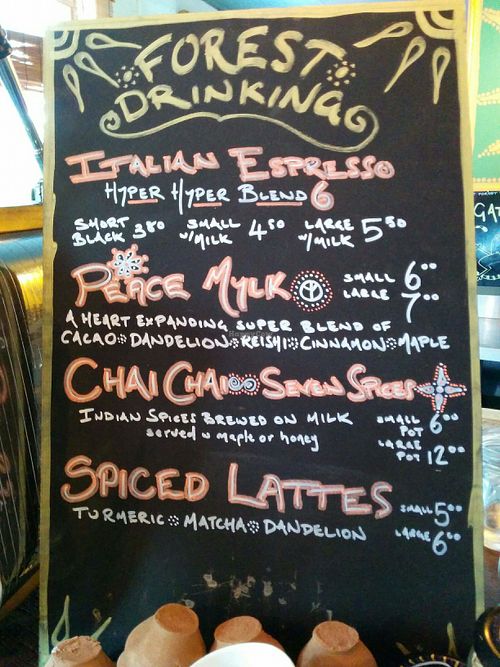 FOREST
DRINKING
ITALIAN ESPRESSO
HYPER HYPER BLEND 6
SHORT BLACK 3 80 SMALL W/MILK 4 50 LARGE W/MILK 5 50
PEACE MYLK SMALL 6 00
LARGE 7 00
A HEART EXPANDING SUPER BLEND OF
CACAO DANDELION REISHI CINNAMON MAPLE
CHAI CHAI SEVEN SPICES
INDIAN SPICES BREWED ON MILK SMALL POT 6 00
served w maple or honey LARGE POT 12 00
SPICED LATTES SMALL 5 00
TURMERIC MATCHA DANDELION LARGE 6 00